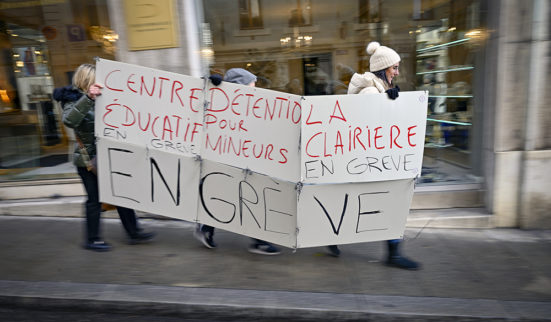 CENTRE
ÉDUCATIF
EN GRÈVE
DÉTENTION
POUR
MINEURS
LA
CLAIRIÈRE
EN GRÈVE
EN GRÈVE